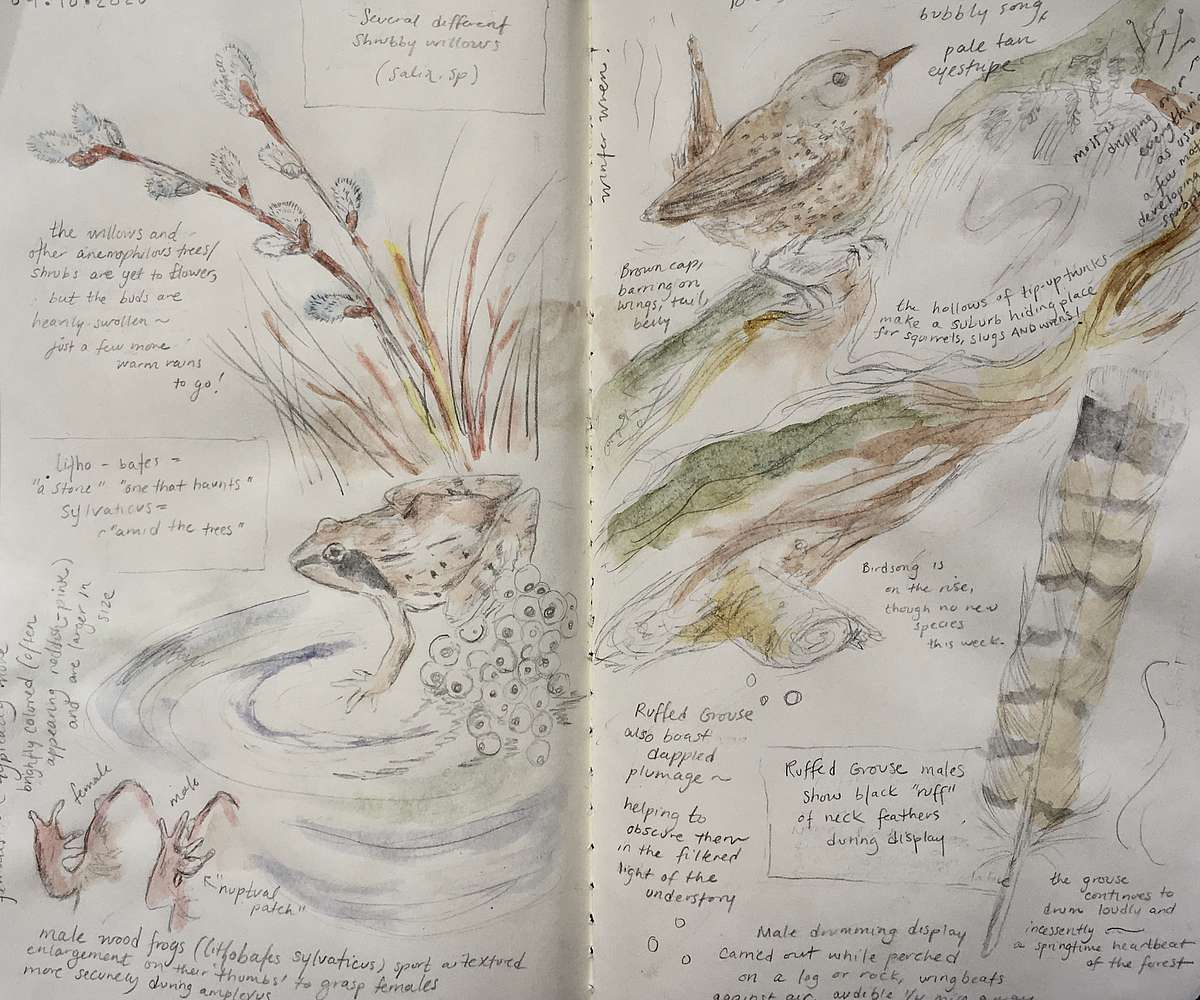 Several different
Shrubby willows
(Salix. sp)
the willows and
other anemophilous trees/
shrubs are yet to flower,
but the buds are
heavily swollen ~
just a few more
warm rains
to go!
litho - bates =
"a stone" "one that haunts"
Sylvaticus =
"amid the trees"
brightly colored (often
appearing reddish-pink)
and are larger in
size
female
male
"nuptual
patch"
male wood frogs (lithobates sylvaticus) sport a textured
enlargement on their "thumbs" to grasp females
more securely during amplexus
winter wren
bubbly song
pale tan
eyestripe
moss is dripping
over
everything
as usual
a few
developing
Brown cap,
barring on
wings, tail,
belly
the hollows of tip-up trunks
make a suburb hiding place
for squirrels, slugs AND wrens!
Birdsong is
on the rise,
though no new
species
this week.
Ruffed Grouse
also boast
dappled
plumage ~
helping to
obscure them
in the filtered
light of the
understory
Ruffed Grouse males
show black "ruff"
of neck feathers
during display
the grouse
continues to
drum loudly and
incessently ~
a springtime heartbeat
of the forest
Male drumming display
carried out while perched
on a log or rock, wingbeats
against air, audible 1/4